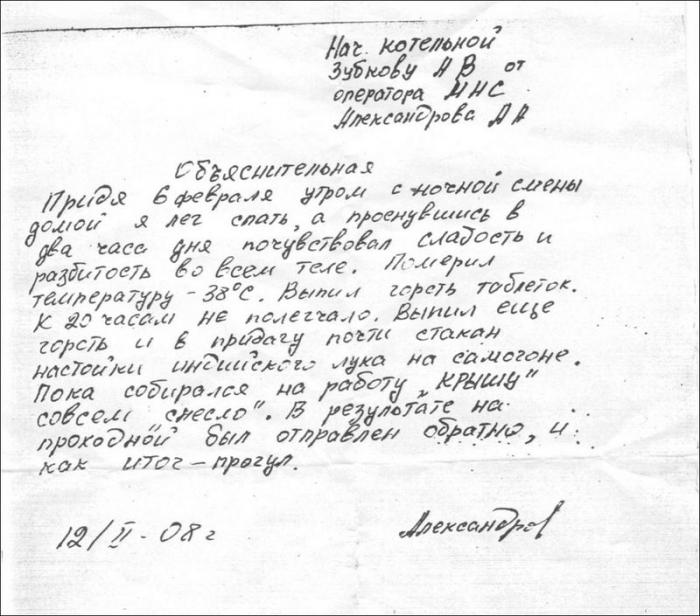 Нач. котельной
Зубкову А В от
оператора МНС
Александрова А А
Объяснительная
Придя 6 февраля утром с ночной смены
домой я лег спать, а проснувшись в
два часа дня почувствовал слабость и
разбитость во всем теле. Померил
температуру - 38°С. Выпил горсть таблеток.
К 20 часам не полегчало. Выпил еще
горсть и в придачу почти стакан
настойки индийского лука на самогоне.
Пока собирался на работу „крышу"
совсем снесло". В результате на
проходной был отправлен обратно, и
как итог - прогул.
12/II - 08 г
Александров